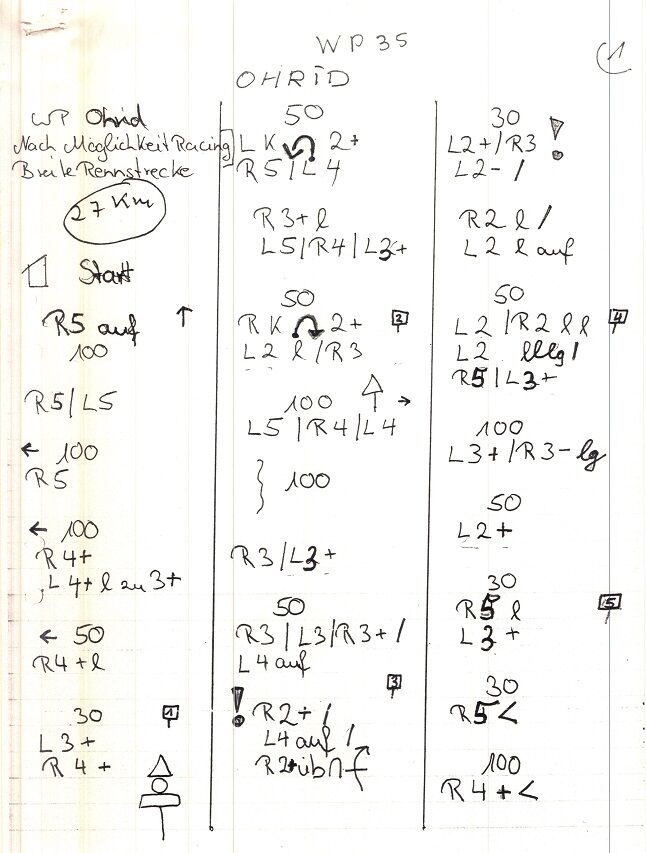 WP 35
1
OHRID
WP Ohrid
Nach Möglichkeit Racing
Breite Rennstrecke
27 Km
Start
R5 auf ↑
100
R5/L5
← 100
R5
← 100
R4+
L4+ l zu 3+
← 50
R4+l
30
1
L3+
R4+
50
L K 2+
R5/L4
R3+ l
L5/R4/L3+
50
R K 2+
2
L2 l/R3
100 →
L5/R4/L4
} 100
R3/L3+
50
R3/L3/R3+/
L4 auf
3
! R2+/
L4 auf /
R2+ üb
30
L2+/R3 !
L2-/
R2 l/
L2 l auf
50
L2/R2 l l
4
L2 lllg/
R5/L3+
100
L3+/R3- lg
50
L2+
30
R5 l
5
L3+
30
R5 <
100
R4+ <